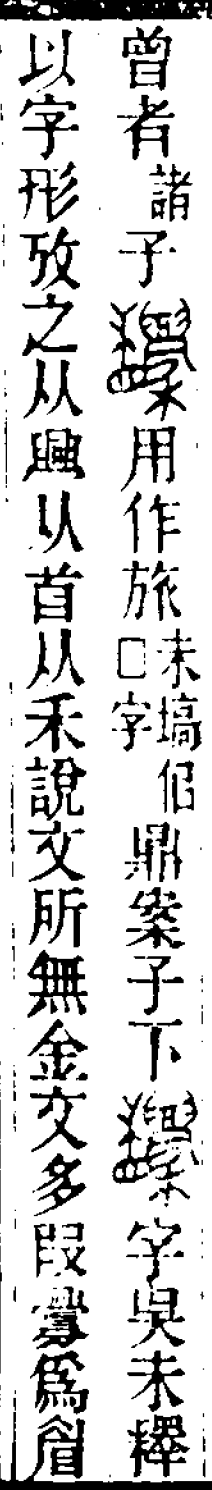 曾者諸子用作旅□字未塙佀鼎案子下字吳未釋
以字形攷之从興从首从禾說文所無金文多叚釁爲眉